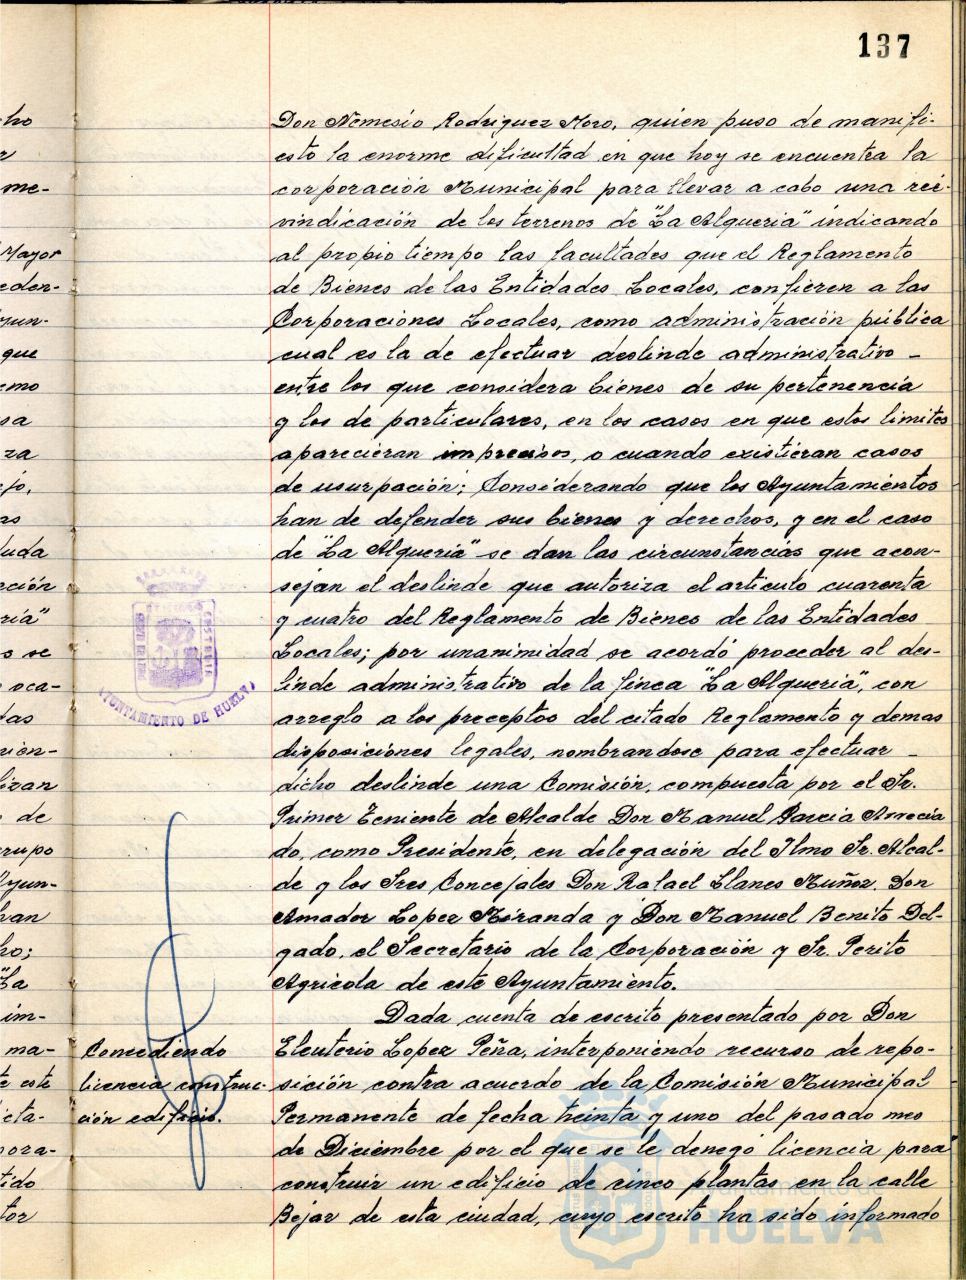 137
Don Nemesio Rodriguez Moro, quien puso de manifi-
esto la enorme dificultad en que hoy se encuentra la
corporación Municipal para llevar a cabo una rei-
vindicación de los terrenos de "La Alqueria" indicando
al propio tiempo las facultades que el Reglamento
de Bienes de las Entidades Locales, confieren a las
Corporaciones Locales, como administración pública
cual es la de efectuar deslinde administrativo -
entre los que considera bienes de su pertenencia
y los de particulares, en los casos en que estos limites
aparecieran imprecisos, o cuando existieran casos
de usurpación; Considerando que los Ayuntamientos
han de defender sus bienes y derechos, y en el caso
de "La Alqueria" se dan las circunstancias que acon-
sejan el deslinde que autoriza el articulo cuarenta
y cuatro del Reglamento de Bienes de las Entidades
Locales; por unanimidad se acordó proceder al des-
linde administrativo de la finca "La Alqueria", con
arreglo a los preceptos del citado Reglamento y demas
disposiciones legales, nombrandose para efectuar -
dicho deslinde una Comisión, compuesta por el Sr.
Primer Teniente de Alcalde Don Manuel Garcia
do, como Presidente, en delegación del Ilmo Sr. Alcal-
de y los Sres Concejales Don Rafael Llanes Muñoz, Don
Amador Lopez Miranda y Don Manuel Benito Del-
gado, el Secretario de la Corporación y Sr. Perito
Agricola de este Ayuntamiento.
Dada cuenta de escrito presentado por Don
Eleuterio Lopez Peña, interponiendo recurso de repo-
sición contra acuerdo de la Comisión Municipal
Permanente de fecha treinta y uno del pasado mes
de Diciembre por el que se le denegó licencia para
construir un edificio de cinco plantas en la calle
Bejar de esta ciudad, cuyo escrito ha sido informado
Concediendo
licencia construc-
ción edificio.
AYUNTAMIENTO DE HUELVA
Ayuntamiento de
HUELVA
cho
r
me-
Mayor
ceder-
yun-
que
emo
sa
za
ejo,
as
duda
rción
ría"
s se
oca-
das
rien-
liran
de
rupo
Ayun-
han
ho;
"La
im-
ma-
te este
icta-
nora-
tido
tor